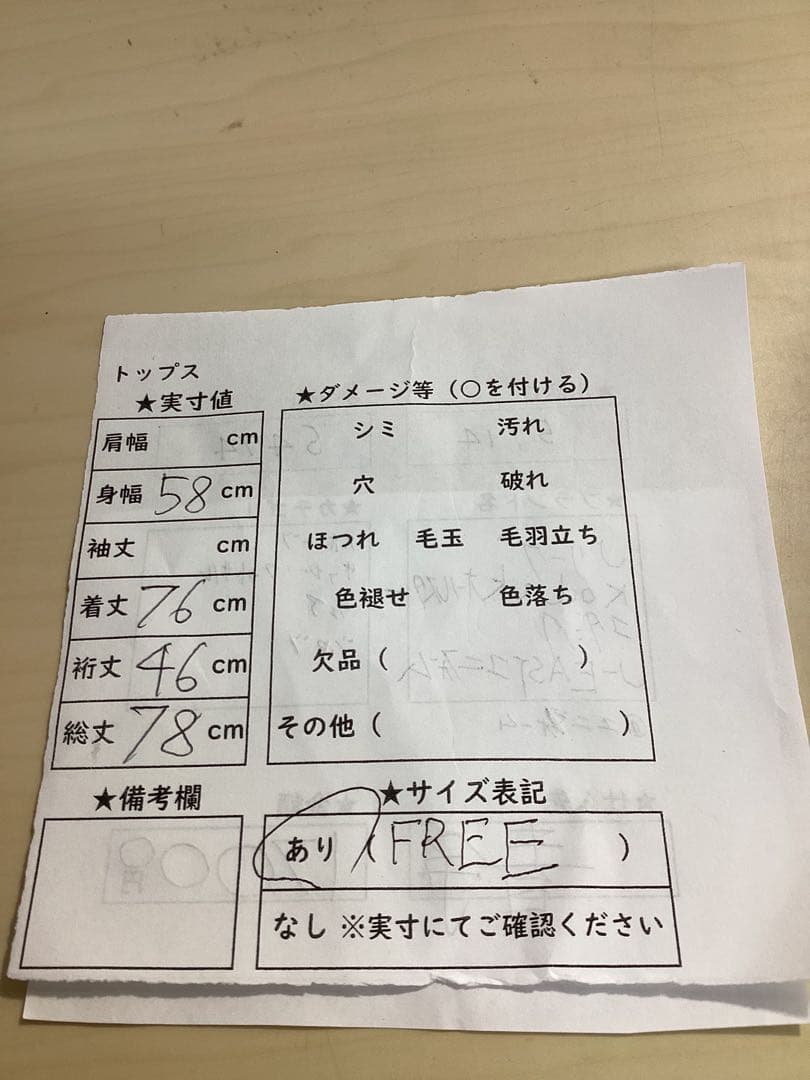 トップス
★実寸値
肩幅 cm
身幅 58 cm
袖丈 cm
着丈 76 cm
裄丈 46 cm
総丈 78 cm
★ダメージ等（○を付ける）
シミ 汚れ
穴 破れ
ほつれ 毛玉 毛羽立ち
色褪せ 色落ち
欠品（ ）
その他（ ）
★備考欄
★サイズ表記
あり（FREE ）
なし ※実寸にてご確認ください